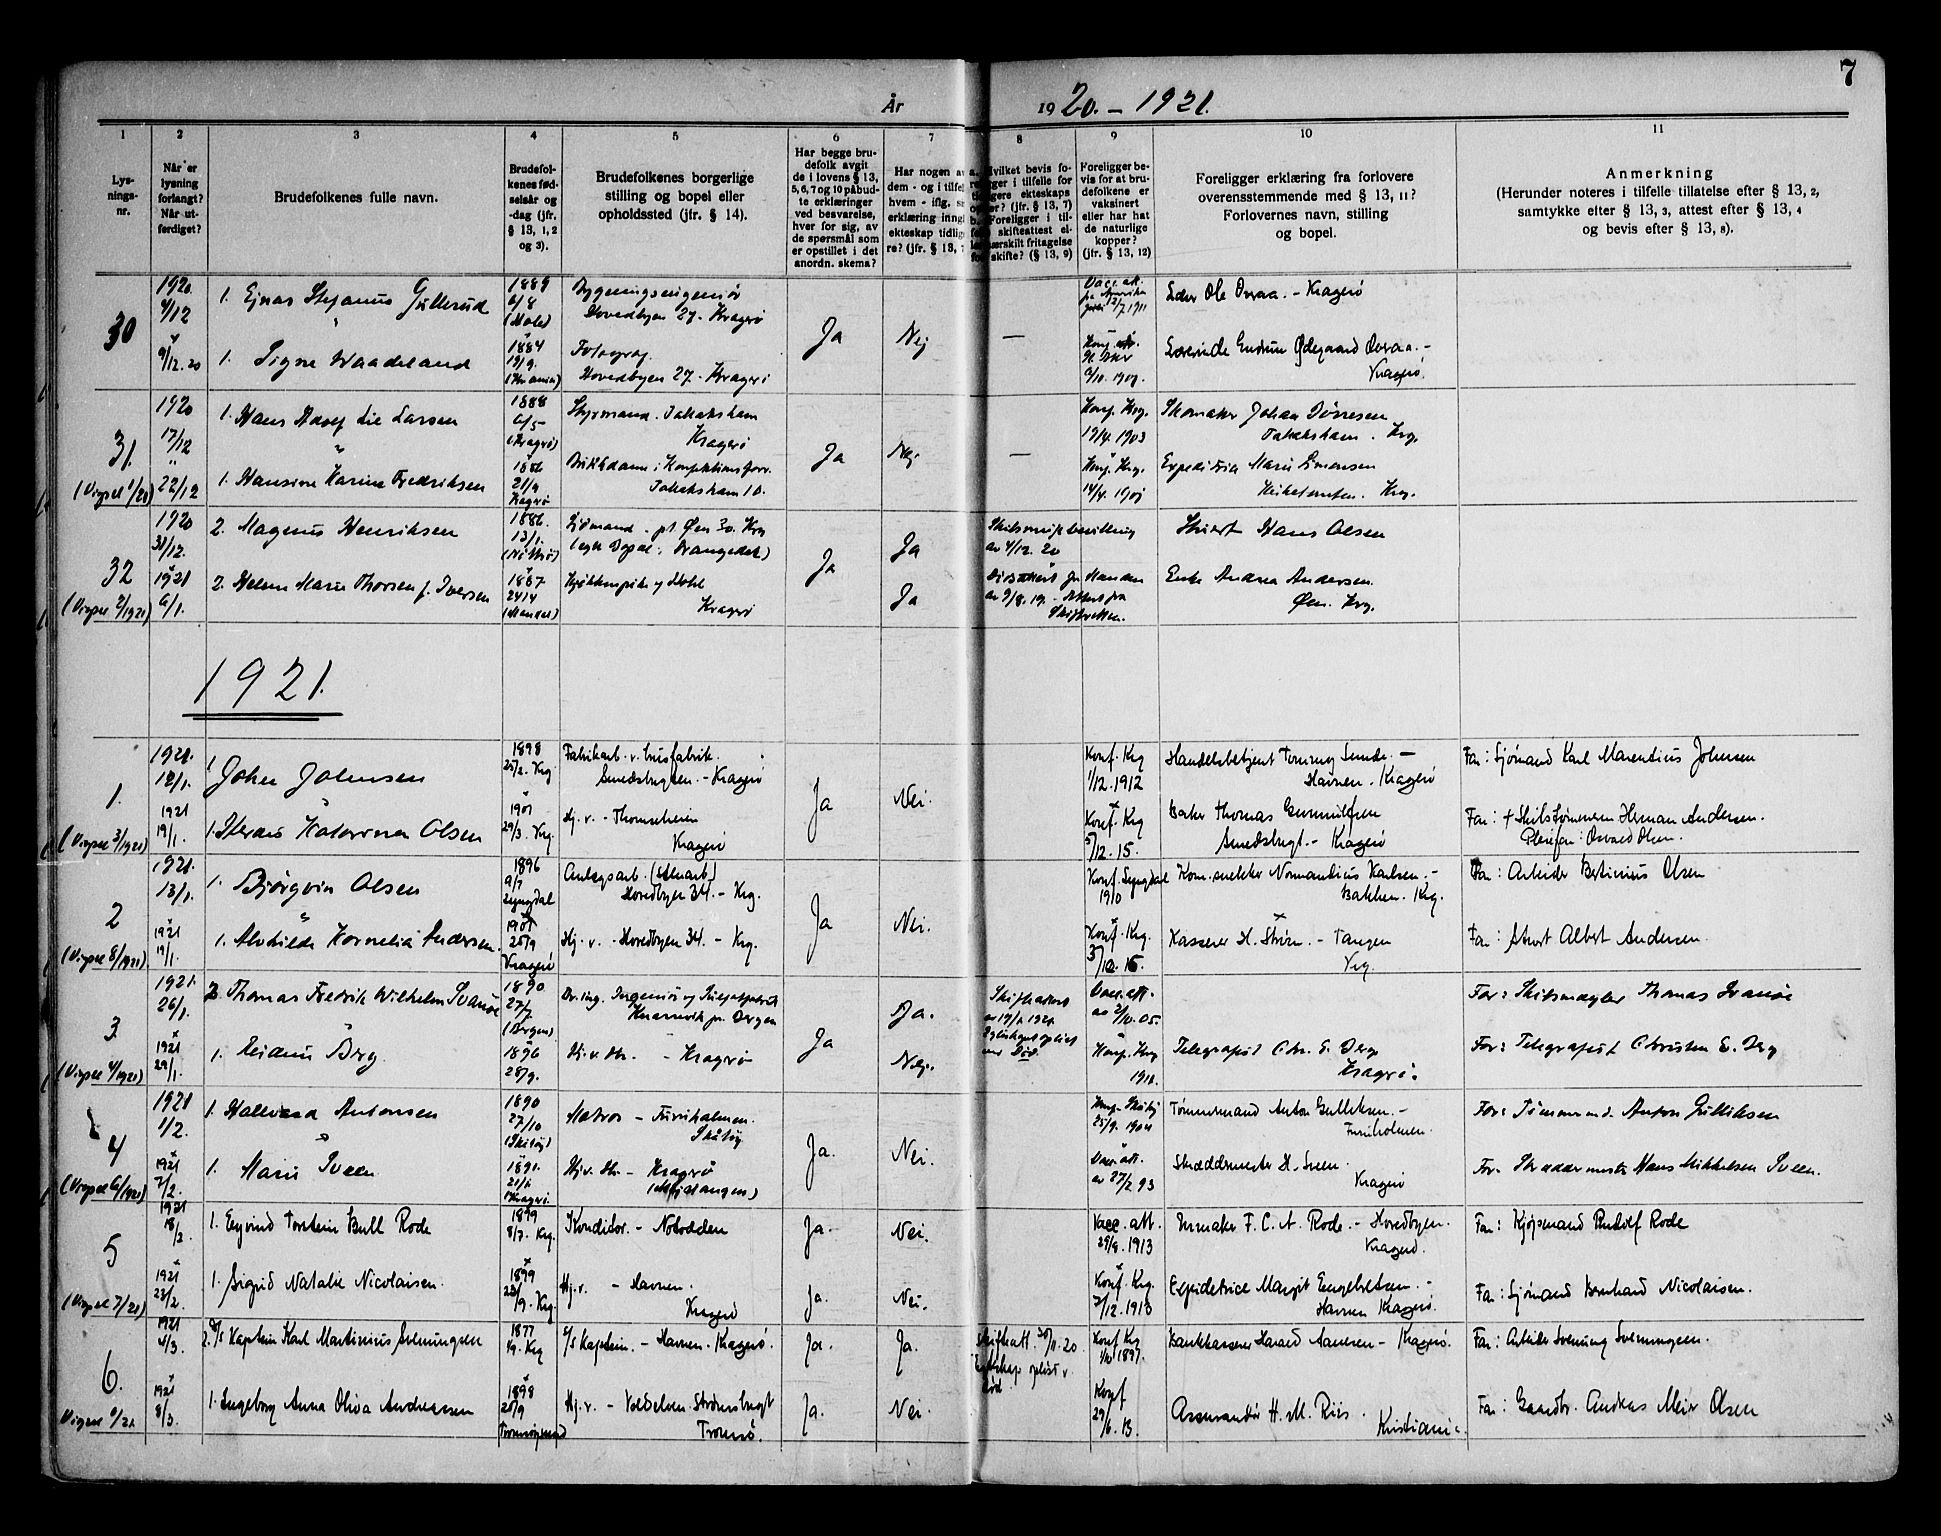 7
År 1920. – 1921.
1 2 3 4 5 6 7 8 9 10 11
Lys-
nings-
nr.
Når er
lysning
forlangt?
Når ut-
ferdiget?
Brudefolkenes fulle navn.
Brudefol-
kenes fød-
selsår og
-dag (jfr.
§ 13, 1, 2
og 3).
Brudefolkenes borgerlige
stilling og bopel eller
opholdssted (jfr. § 14).
Har begge bru-
defolk avgit
de i lovens § 13,
5, 6, 7 og 10 påbud-
te erklæringer
ved besvarelse,
hver for sig, av
de spørsmål som
er opstillet i det
anordn. skema?
Har nogen a
dem - og i tilfel
hvem - iflg. s
erklæring inng
ekteskap tidlig
re? (jfr. § 13,
Hvilket bevis fo-
religger i tilfelle for
tidligere ekteskaps
(jfr. § 13, 7)
b. Foreligger i til-
skifteattest el-
særskilt fritagelse
skifte? (§ 13, 9)
Foreligger be-
vis for at bru-
defolkene er
vaksinert
eller har hat
de naturlige
kopper?
(jfr. § 13, 12)
Foreligger erklæring fra forlovere
overensstemmende med § 13, 11?
Forlovernes navn, stilling
og bopel.
Anmerkning
(Herunder noteres i tilfelle tillatelse efter § 13, 2,
samtykke efter § 13, 3, attest efter § 13, 4
og bevis efter § 13, 8).
30
1920
4/12
1. Ejnar Stefanus Gullerud
1889
6/8
(Hole)
Bygningsingeniør
Hovedbyen 27. Kragerø
Ja
Nej
—
Vacc. att.
12/7 1911
Ole Ovraa. – Kragerø
9/12.20
1. Signe Waadeland
1884
19/9.
Fotograf.
Hovedbyen 27. Kragerø
Lærerinde Gudrun Ødegaard Ovraa. –
Kragerø.
31.
(Vigsel 1/20)
1920
17/12
22/12
1. Hans Adolf Lie Larsen
1888
6/5
(Kragerø)
Styrmand. Jakobsham
Kragerø
Ja
Nej
—
Konf. Krg.
19/4. 1903
Skomaker Johan Tørresen
Jakobsham. Krg.
1. Hansine Karine Fredriksen
1886
21/9
Kragerø
Butikkdame i Konfektionsforr.
Jakobsham 10.
Konf. Krg.
14/4. 1901
Expeditrice Marie Simonsen
Krg.
32
(Vigsel 2/1921)
1920
31/12.
1921
6/1.
2. Magnus Henriksen
1886.
13/1.
Sjømand. pt Øen 30. Krg
(egtl. Bopæl: Drangedal)
Ja
Ja
Skilsmissebevilling
av 4/12. 20
Hans Olsen
2. Helene Marie Thorsen f. Iversen
1887
24/4
(Mandal)
Kjøkkenpike
Kragerø
Ja
av 9/8. 19. – Attest fra
Skifteretten.
Enke Andrea Andersen.
Øen. Krg.
1921.
1.
(Vigsel 3/1921)
1921.
12/1.
1 Johan Johnsen
1898
25/2. Krg
Fabrikarb. v. Isfabrik.
Smedsbugten. – Kragerø
Ja
Nei.
Konf. Krg
1/12. 1912
Handelsbetjent Tommy Sunde. –
Havnen. Kragerø
Far: Sjømand Karl Marentius Johnsen
1921
19/1.
1. Katarina Olsen
1901
29/3. Krg.
Hj. v. – Thomesheien
Kragerø
Konf. Krg
5/12. 15.
Baker Thomas Gunmulfsen
Smedsbugt. – Kragerø
Far: + Skibstømmerm Herman Andersen.
Pleiefar: Osvald Olsen.
2
(Vigsel 8/1921)
1921.
13/1.
1. Bjørgvin Olsen
1896
9/7
Lyngdal
Anlegsarb. (Stenarb.)
Hovedbyen 34. – Krg.
Ja
Nei.
Konf. Lyngdal
1910
Kom. snekker Normandius Karlsen. –
Bakken. Krg.
Far: Arbeider Bertinius Olsen
1921
19/1.
1. Alvhilde Kornelia Andersen.
1901
25/9
Kragerø
Hj. v. – Hovedbyen 34. – Krg.
Konf. Krg.
3/12. 15
Kasserer H. Strøm. – Tangen
Krg.
Far: Albert Andersen.
3
(Vigsel 4/1921)
1921.
26/1.
2. Thomas Fredrik Wilhelm Svanøe
1890
27/7
(Bergen)
Dr. ing. Ingeniør
Knarrevik pr. Bergen
Ja
Ja.
Skifteattest
Egteskapet opløst
ved Død.
Vacc. att.
av 2/10. 05.
For: Skibsmægler Thomas Svanøe
1921
29/1.
1. Reidun Berg
1896
28/9.
Hj. v. Hr. – Kragerø
Nej.
Konf. Krg
1911.
Telegrafist Chr. E. Berg
Kragerø.
For: Telegrafist Christen E. Berg
4
(Vigsel 6/1921)
1921
1/2.
1. Hallvard Antonsen
1890
27/10
(Skåtøy)
Matros – Furuholmen.
Skåtøy
Ja.
Nei.
Konf. Skåtøy
25/9. 1904
Tømmermand Anton Gulliksen. –
Furuholmen.
For: Tømmermand Anton Gulliksen
1921
7/2.
1. Marie Sveen
1891.
21/1
Kragerø.
Hj. v. Hr. – Kragerø
Vacc. att.
av 27/2 93
Skræddermester H. Sveen.
Kragerø
For. Skræddermester Hans Mikkelsen Sveen.
5
(Vigsel 7/21)
1921
18/2
1. Eyvind Torstein Bull Rode
1899
8/7. Krg.
Konditor. – Notodden
Ja.
Nei.
Vacc. att.
29/8. 1913
Urmaker F. C. A. Rode. – Hovedbyen.
Kragerø.
Far: Kjøpmand Rudolf Rode
1921
23/2.
1. Sigrid Natalie Nicolaisen.
1899
23/9. Krg.
Hj. v. – Havnen.
Kragerø
Ja.
Nei.
Konf. Krg.
7/12. 1913
Expeditrice Margit Engebretsen. –
Havnen Kragerø.
Far: Sjømand Bernhard Nicolaisen.
6.
Vigsel 9/21
1921
4/3.
2. D/S Kaptein Karl Martinius Svenungsen
1877
Krg
D/S Kaptein. – Havnen. Kragerø.
Ja.
Ja.
Skifteatt. 30/11. 20
Egteskap opløst v.
død.
Konf Krg
1891.
Bankkasserer Harald Aanesen – Kragerø.
Far: Arbeider Svenung Svenungsen.
1921
8/3.
1. Ingeborg Anna Oliva Andreassen
1898
20/9
Hj. v. – Strømsbugt
Tromsø.
Ja.
Nei.
Konf
29/6. 13.
Assurandør H. M. Riis.
Kristiania.
Far: Gaardbr. Andreas Meier Olsen